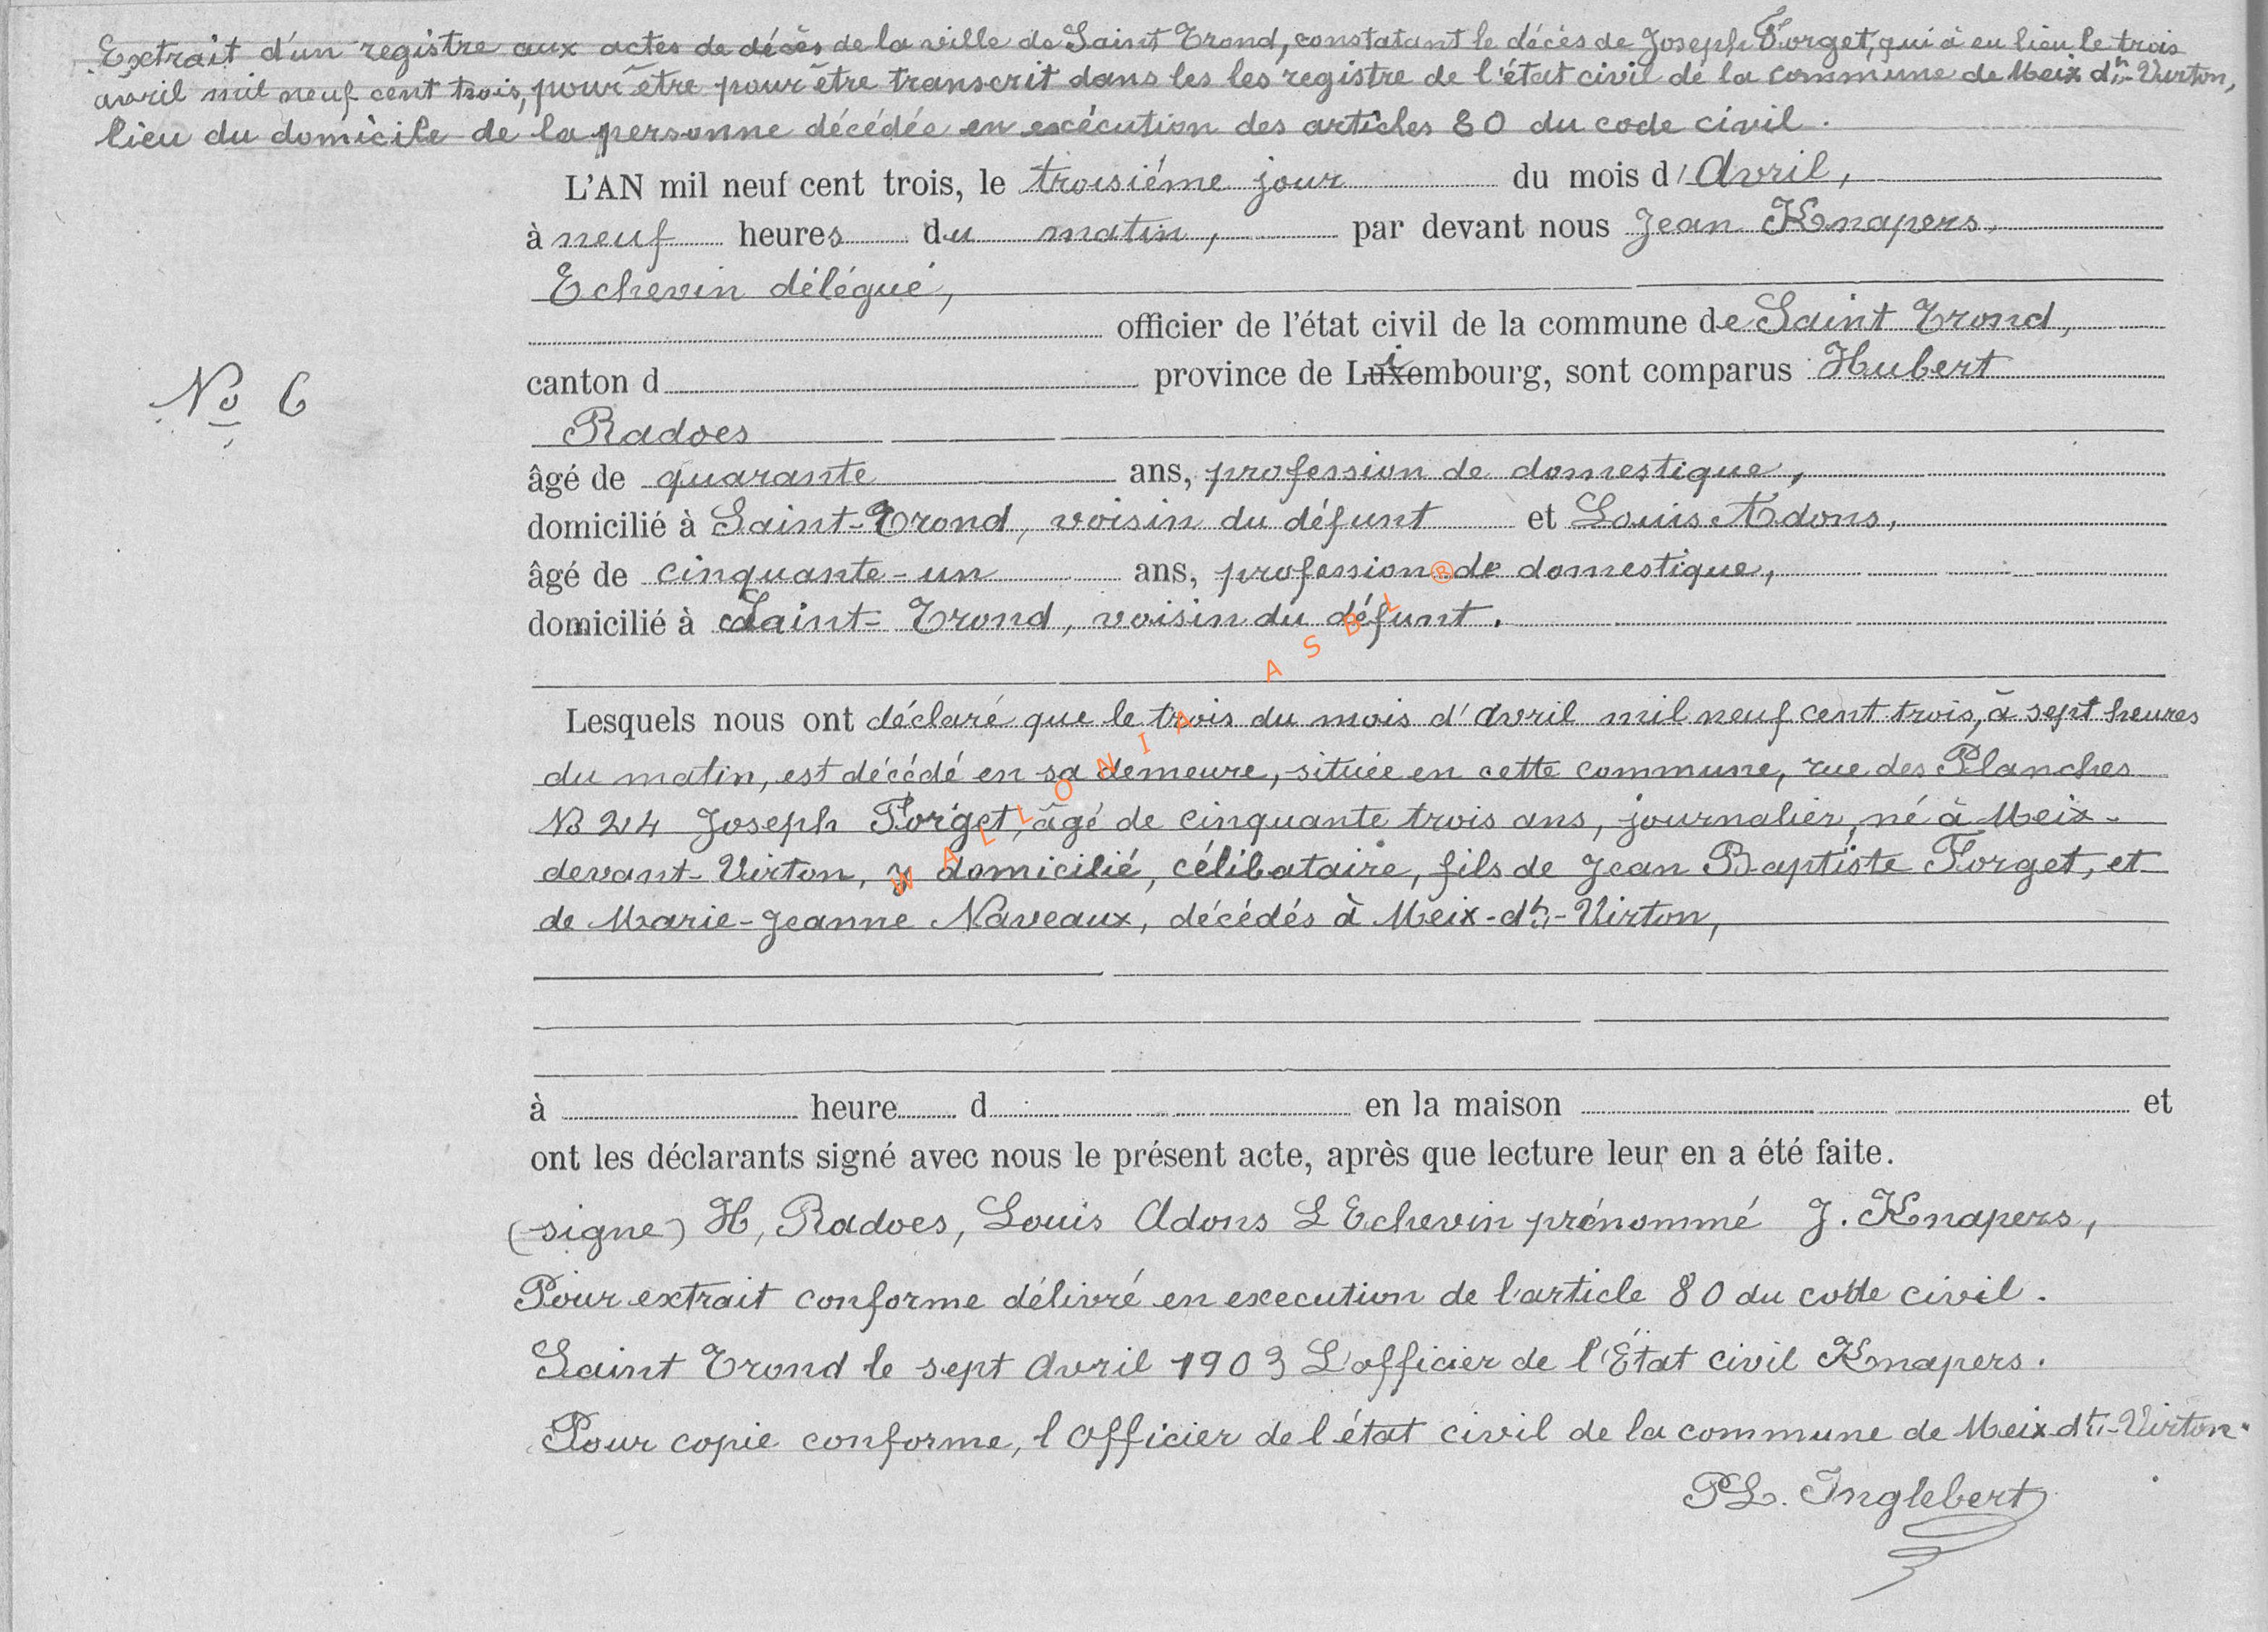 Extrait d'un registre aux actes de décès de la ville de Saint Trond, constatant le décès de Joseph Forget, qui à eu lieu le trois
avril mil neuf cent trois, pour être pour être transcrit dans les les registre de l'état civil de la commune de Meix dt-Virton,
lieu du domicile de la personne décédée en exécution des articles 80 du code civil.
L'AN mil neuf cent trois, le troisiéme jour du mois d'Avril,
à neuf heures du matin, par devant nous Jean Knapers,
Echevin délégué,
officier de l'état civil de la commune de Saint Trond,
canton d province de Limbourg, sont comparus Hubert
No 6
Radoes
âgé de quarante ans, profession de domestique,
domicilié à Saint-Trond, voisin du défunt et Louis Adons,
âgé de cinquante-un ans, profession de domestique,
domicilié à Saint-Trond, voisin du défunt.
WALLONIA ASBL ®
Lesquels nous ont déclaré que le trois du mois d'Avril mil neuf cent trois, à sept heures
du matin, est décédé en sa demeure, située en cette commune, rue des Planches
No 24 Joseph Forget, âgé de cinquante trois ans, journalier, né à Meix-
devant-Virton, y domicilié, célibataire, fils de Jean Baptiste Forget, et
de Marie-Jeanne Naveaux, décédés à Meix-dt-Virton,
à heure d en la maison et
ont les déclarants signé avec nous le présent acte, après que lecture leur en a été faite.
(signe) H, Radoes, Louis Adons L Echevin prénommé J. Knapers,
Pour extrait conforme délivré en execution de l'article 80 du code civil.
Saint Trond le sept Avril 1903 L'officier de l'État civil Knapers.
Pour copie conforme, l Officier de l état civil de la commune de Meix-dt-Virton.
PL. Inglebert